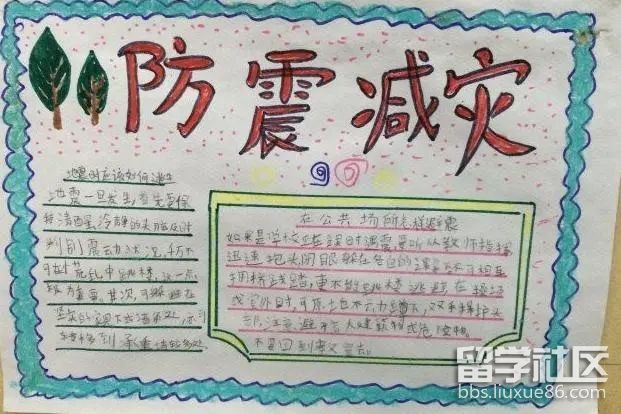 防震减灾
地震时应该如何逃生
地震一旦发生,首先要保
持清醒、冷静的头脑,及时
判别震动状况,千万不
可在慌乱中跳楼,这一点
极为重要。其次,可躲避在
坚实的家具下或墙角处,亦可
转移到承重墙较多处
在公共场所怎样避震
如果是学校在上课时遇震要听从教师指挥
迅速抱头闭眼躲在各自的课桌下
拥挤践踏,更不能跳楼逃避在操场
或室外时,可原地不动蹲下,双手保护头
部,注意避开高大建筑物或危险物。
不要回到教室去。
留学社区
bbs.liuxue86.com